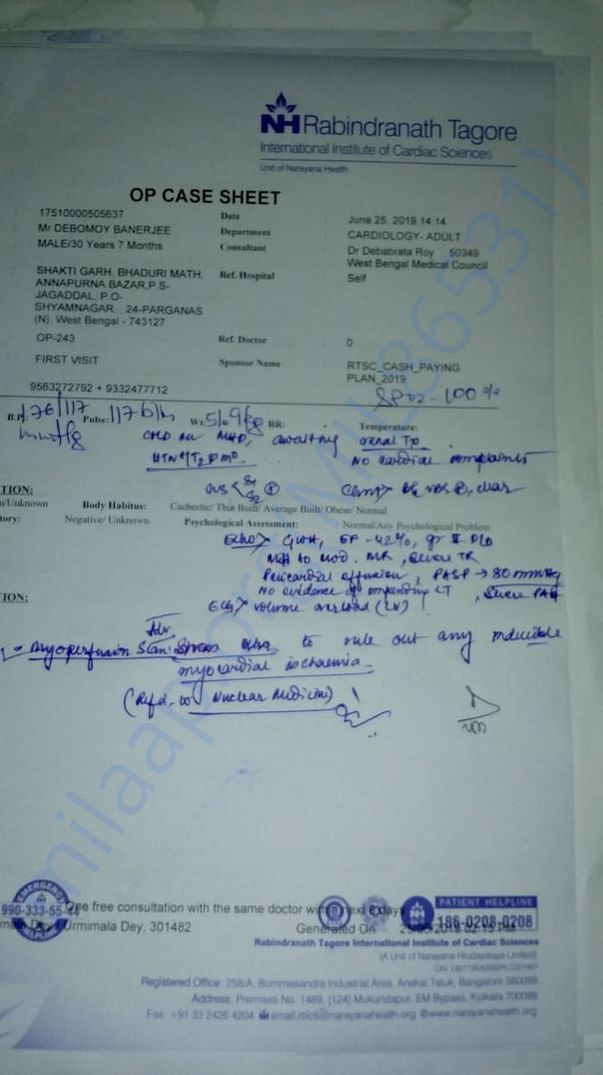 NH Rabindranath Tagore
International Institute of Cardiac Sciences
Unit of Narayana Health
OP CASE SHEET
17510000505637 Date : June 25, 2019 14:14
Mr DEBOMOY BANERJEE Department CARDIOLOGY- ADULT
MALE/30 Years 7 Months Consultant Dr Debabrata Roy 50349
West Bengal Medical Council
SHAKTI GARH, BHADURI MATH, Ref. Hospital : Self
ANNAPURNA BAZAR,P.S-
JAGADDAL, P.O-
SHYAMNAGAR, , 24-PARGANAS
(N), West Bengal - 743127
OP-243 Ref. Doctor : 0
FIRST VISIT Sponsor Name : RTSC_CASH_PAYING
PLAN_2019
9563272792 + 9332477712
SPO2 - 100%
B.P: 176/117 Pulse: 117 b/m Wt: 51.9kg RR: Temperature:
mmHg CKD on MHD, awaiting renal Tp
HTN/T2DM No cardiac complaints
CVS S1 S2 Chest clear
TION:
n/Unknown Body Habitus: Cachectic/ Thin Built/ Average Built/ Obese/ Normal
tory: Negative/ Unknown Psychological Assessment: Normal/Any Psychological Problem
Echo> GLVH, EF - 42%, gr II DD
Mild to mod. MR, Severe TR
Pericardial effusion, PASP → 80 mmHg
No evidence of impending CT, Severe PAH
TION:
ECG> volume overload (LV)
Adv
Myoperfusion Scan: Stress to rule out any inducible
myocardial ischaemia.
(Refd. to Nuclear Medicine)
EMERGENCY
990-333-55-44
One free consultation with the same doctor within next 6 days
Urmimala Dey, 301482 Generated On
PATIENT HELPLINE
186-0208-0208
Rabindranath Tagore International Institute of Cardiac Sciences
(A Unit of Narayana Hrudayalaya Limited)
Registered Office: 258/A, Bommasandra Industrial Area, Anekal Taluk, Bangalore 560099
Address: Premises No. 1489, (124) Mukundapur, EM Bypass, Kolkata 700099
Fax: +91 33 2426 4204 email.rtiics@narayanahealth.org www.narayanahealth.org